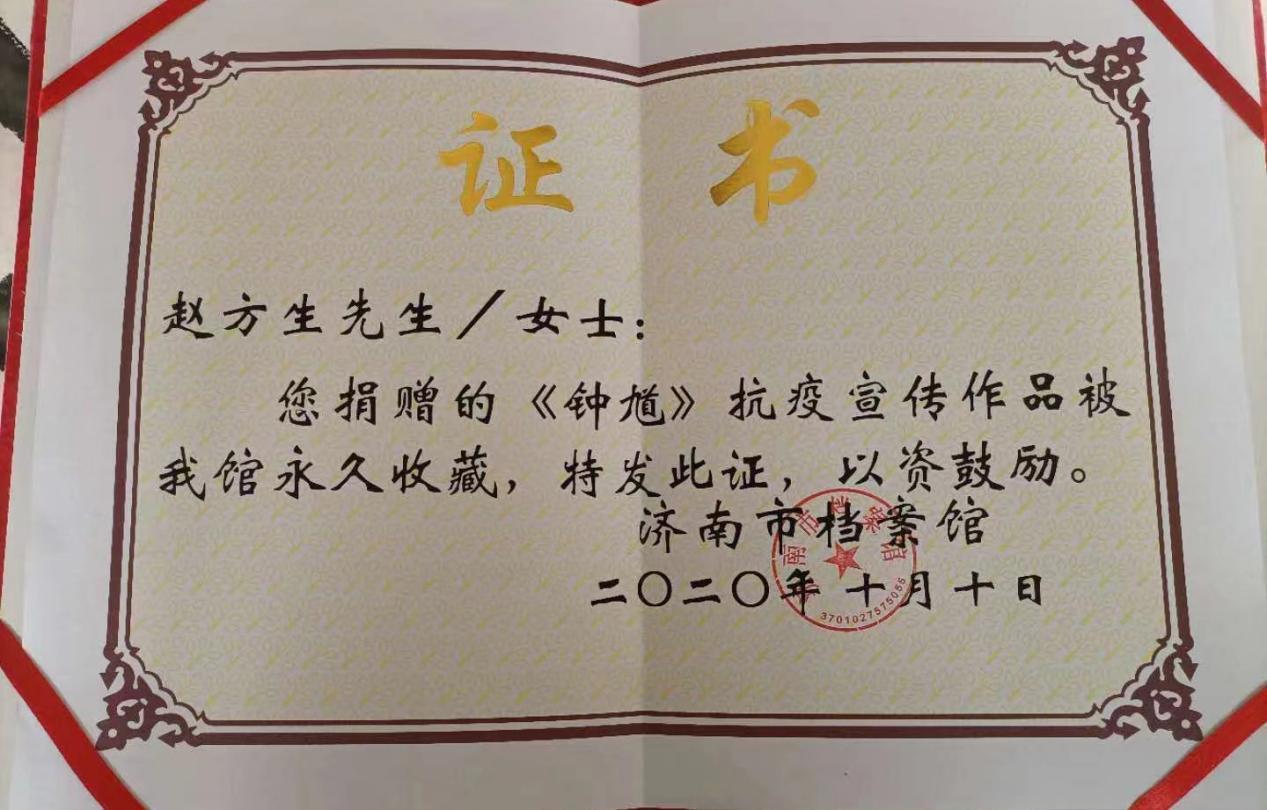 证书
赵方生先生／女士：
您捐赠的《钟馗》抗疫宣传作品被
我馆永久收藏，特发此证，以资鼓励。
济南市档案馆
二〇二〇年十月十日
南市档案馆
3701027575055